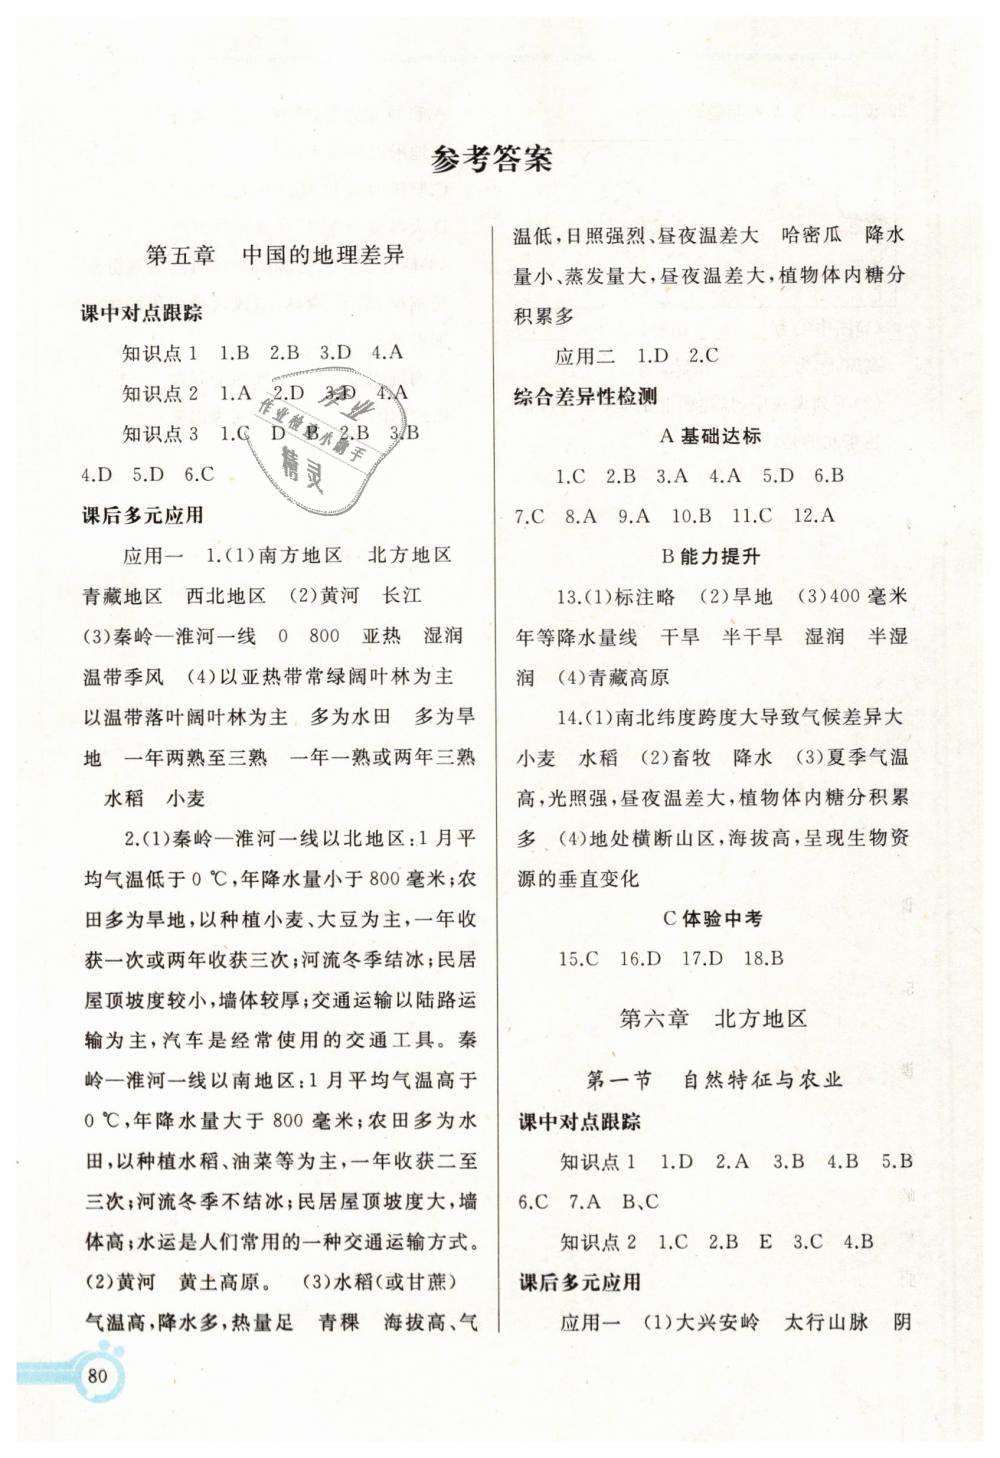 参考答案
第五章　中国的地理差异
课中对点跟踪
知识点1　1.B　2.B　3.D　4.A
知识点2　1.A　2.D　3.D　4.A
知识点3　1.C　D　B　2.B　3.B
4.D　5.D　6.C
课后多元应用
应用一　1.(1)南方地区　北方地区
青藏地区　西北地区　(2)黄河　长江
(3)秦岭—淮河一线　0　800　亚热　湿润
温带季风　(4)以亚热带常绿阔叶林为主
以温带落叶阔叶林为主　多为水田　多为旱
地　一年两熟至三熟　一年一熟或两年三熟
水稻　小麦
2.(1)秦岭—淮河一线以北地区:1月平
均气温低于0 ℃,年降水量小于800毫米;农
田多为旱地,以种植小麦、大豆为主,一年收
获一次或两年收获三次;河流冬季结冰;民居
屋顶坡度较小,墙体较厚;交通运输以陆路运
输为主,汽车是经常使用的交通工具。秦
岭—淮河一线以南地区:1月平均气温高于
0 ℃,年降水量大于800毫米;农田多为水
田,以种植水稻、油菜等为主,一年收获二至
三次;河流冬季不结冰;民居屋顶坡度大,墙
体高;水运是人们常用的一种交通运输方式。
(2)黄河　黄土高原。　(3)水稻(或甘蔗)
气温高,降水多,热量足　青稞　海拔高、气
温低,日照强烈、昼夜温差大　哈密瓜　降水
量小、蒸发量大,昼夜温差大,植物体内糖分
积累多
应用二　1.D　2.C
综合差异性检测
A 基础达标
1.C　2.B　3.A　4.A　5.D　6.B
7.C　8.A　9.A　10.B　11.C　12.A
B 能力提升
13.(1)标注略　(2)旱地　(3)400毫米
年等降水量线　干旱　半干旱　湿润　半湿
润　(4)青藏高原
14.(1)南北纬度跨度大导致气候差异大
小麦　水稻　(2)畜牧　降水　(3)夏季气温
高,光照强,昼夜温差大,植物体内糖分积累
多　(4)地处横断山区,海拔高,呈现生物资
源的垂直变化
C 体验中考
15.C　16.D　17.D　18.B
第六章　北方地区
第一节　自然特征与农业
课中对点跟踪
知识点1　1.D　2.A　3.B　4.B　5.B
6.C　7.A　B、C
知识点2　1.C　2.B　E　3.C　4.B
课后多元应用
应用一　(1)大兴安岭　太行山脉　阴
80
作业
作业检查小助手
精灵